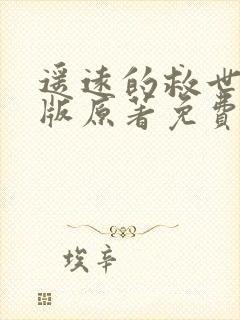 遥远的救世
版原著免费
埃辛